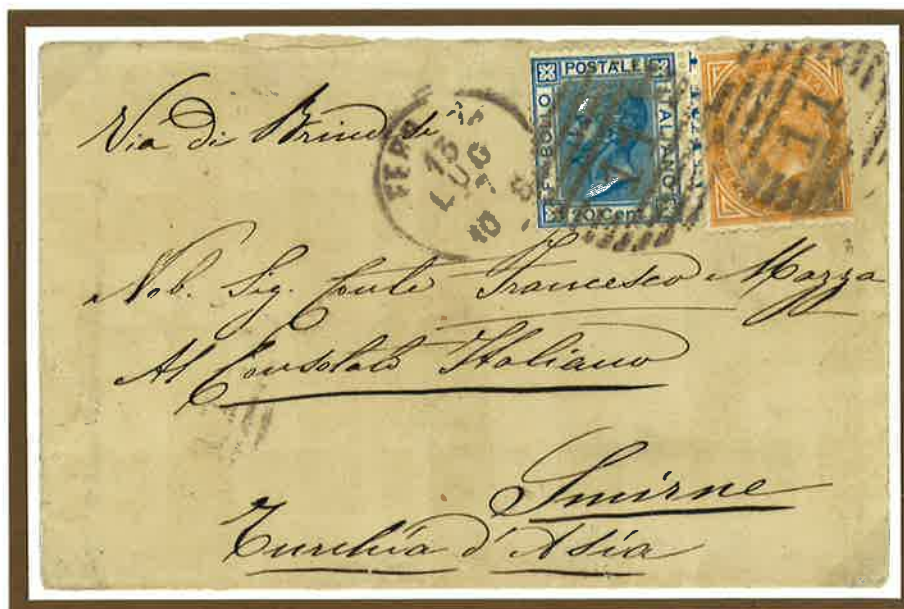 Via di Brindisi
13
LUG
10
POSTALE
BOLLO
ITALIANO
20 Cent
Nob. Sig. Conte Francesco Mazza
Al Consolato Italiano
Smirne
Turchia d'Asia